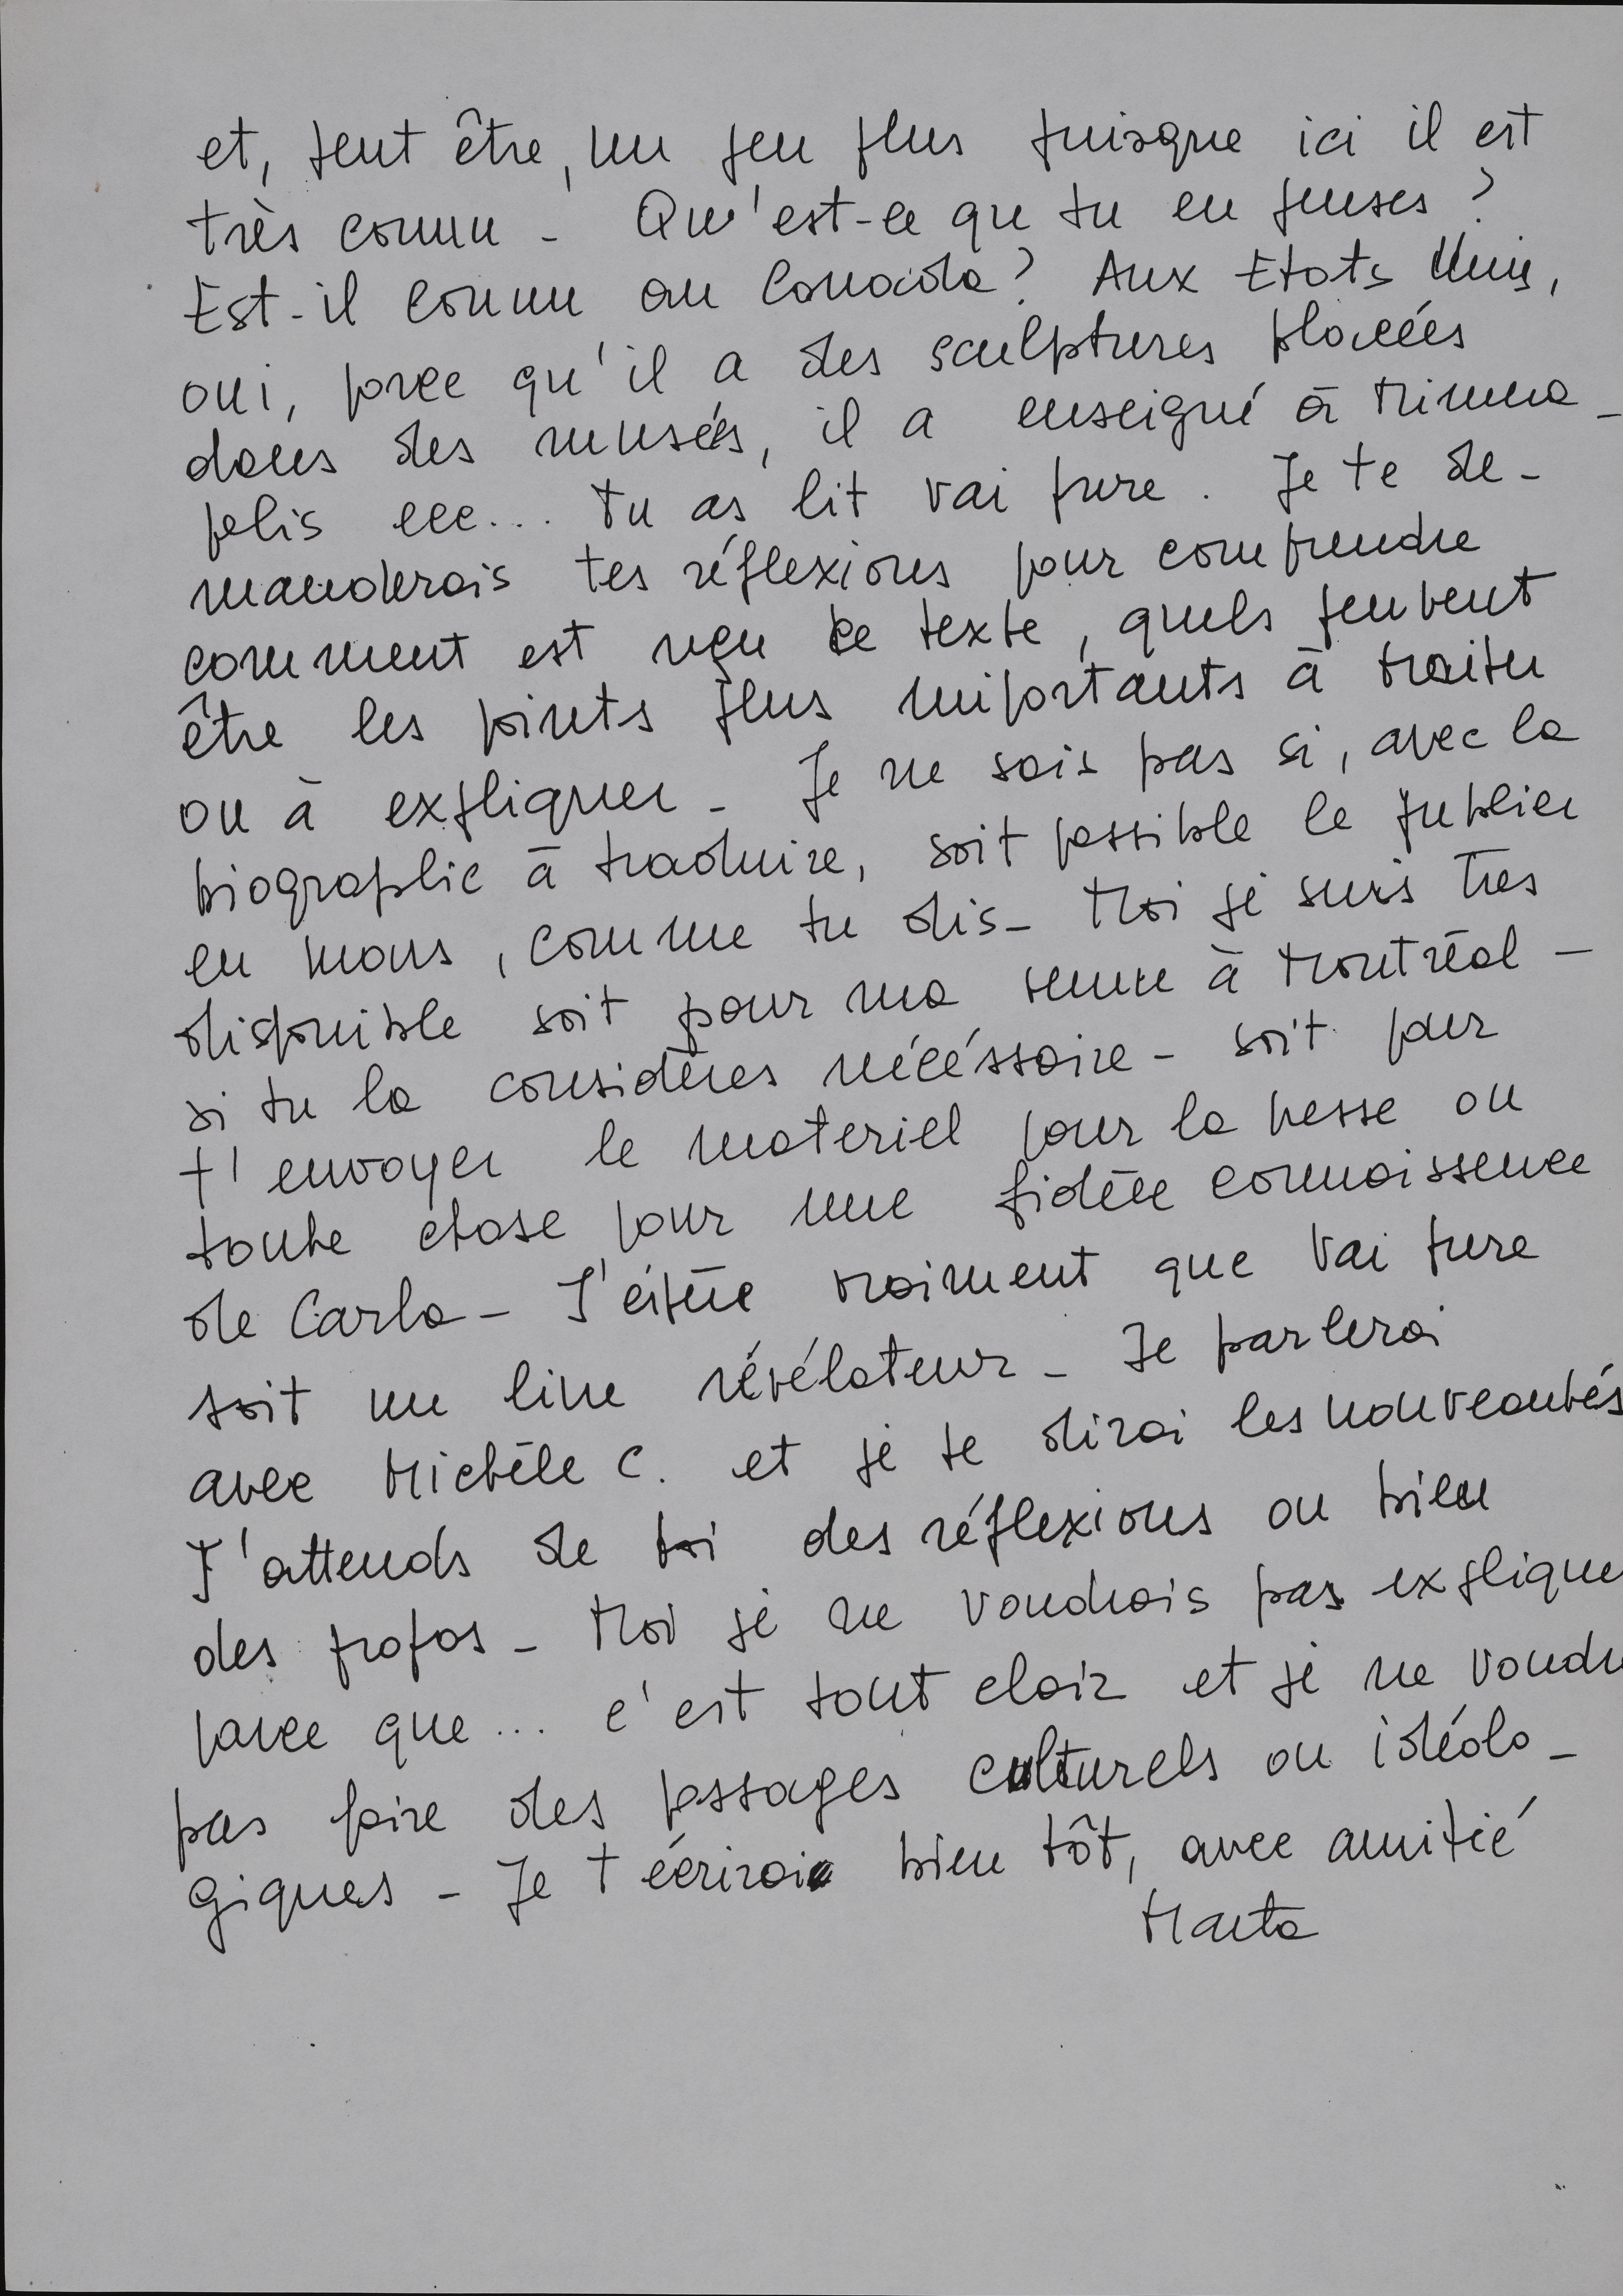 et, peut être, un peu plus puisque ici il est
très connu - Qu'est-ce que tu en penses ?
Est-il connu au Canada ? Aux Etats Unis,
oui, parce qu'il a des sculptures placées
dans des musées, il a enseigné à Minnea-
polis ecc... Tu as lit Vai pure. Je te de-
manderais tes réflexions pour comprendre
comment est reçu ce texte, quels peuvent
être les points plus importants à traiter
ou à expliquer - Je ne sais pas si, avec la
biographie à traduire, soit possible le publier
en mars, comme tu dis - Moi je suis très
disponible soit pour ma venue à Montréal -
si tu la considères nécéssaire - soit pour
t'envoyer le materiel pour la presse ou
toute chose pour une fidèle connaissence
de Carla - J'éspère vraiment que Vai pure
soit un livre révélateur - Je parlerai
avec Michèle C. et je te dirai les nouveautés
J'attends de toi des réflexions ou bien
des propos - Moi je ne voudrais pas explique
parce que ... c'est tout clair et je ne voudr
pas faire des passages culturels ou idéolo-
giques - Je t'écrirai bien tôt, avec amitié
Marta